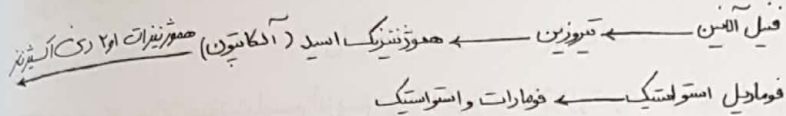 فنیل آلانین ← تیروزین ← هموژنتیزیک اسید (آلکاپتون) هموژنتیزات ۱و۲ دی اکسیژناز ←
فوماریل استواستیک ← فومارات و استواستیک